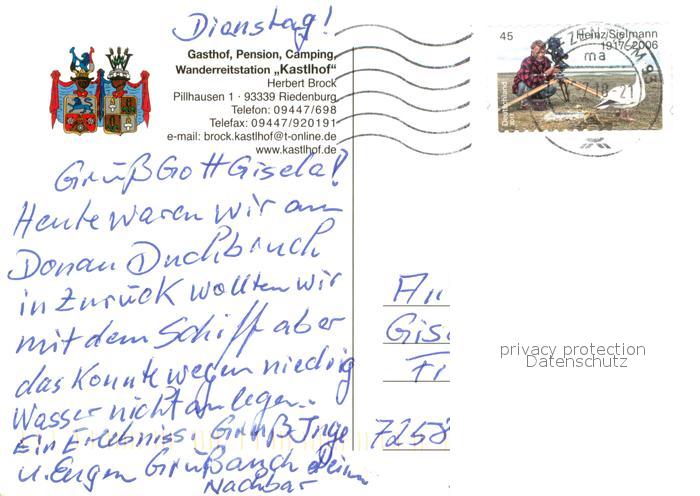 Dienstag!
Gasthof, Pension, Camping,
Wanderreitstation „Kastlhof"
Herbert Brock
Pillhausen 1 · 93339 Riedenburg
Telefon: 09447/698
Telefax: 09447/920191
e-mail: brock.kastlhof@t-online.de
www.kastlhof.de
45 Heinz Sielmann
1917-2006
Deutschland
Grüß Gott Gisela!
Heute waren wir am
Donau Duchbruch
in Zurück wollten wir
mit dem Schiff aber
das Konnte wegen niedrig
Wasser nicht anlegen..
Ein Erlebniss. Gruß Inge
u. Eugen Grüß auch Deinen
Nachbar
An
Gis
Fr
7258
privacy protection
Datenschutz